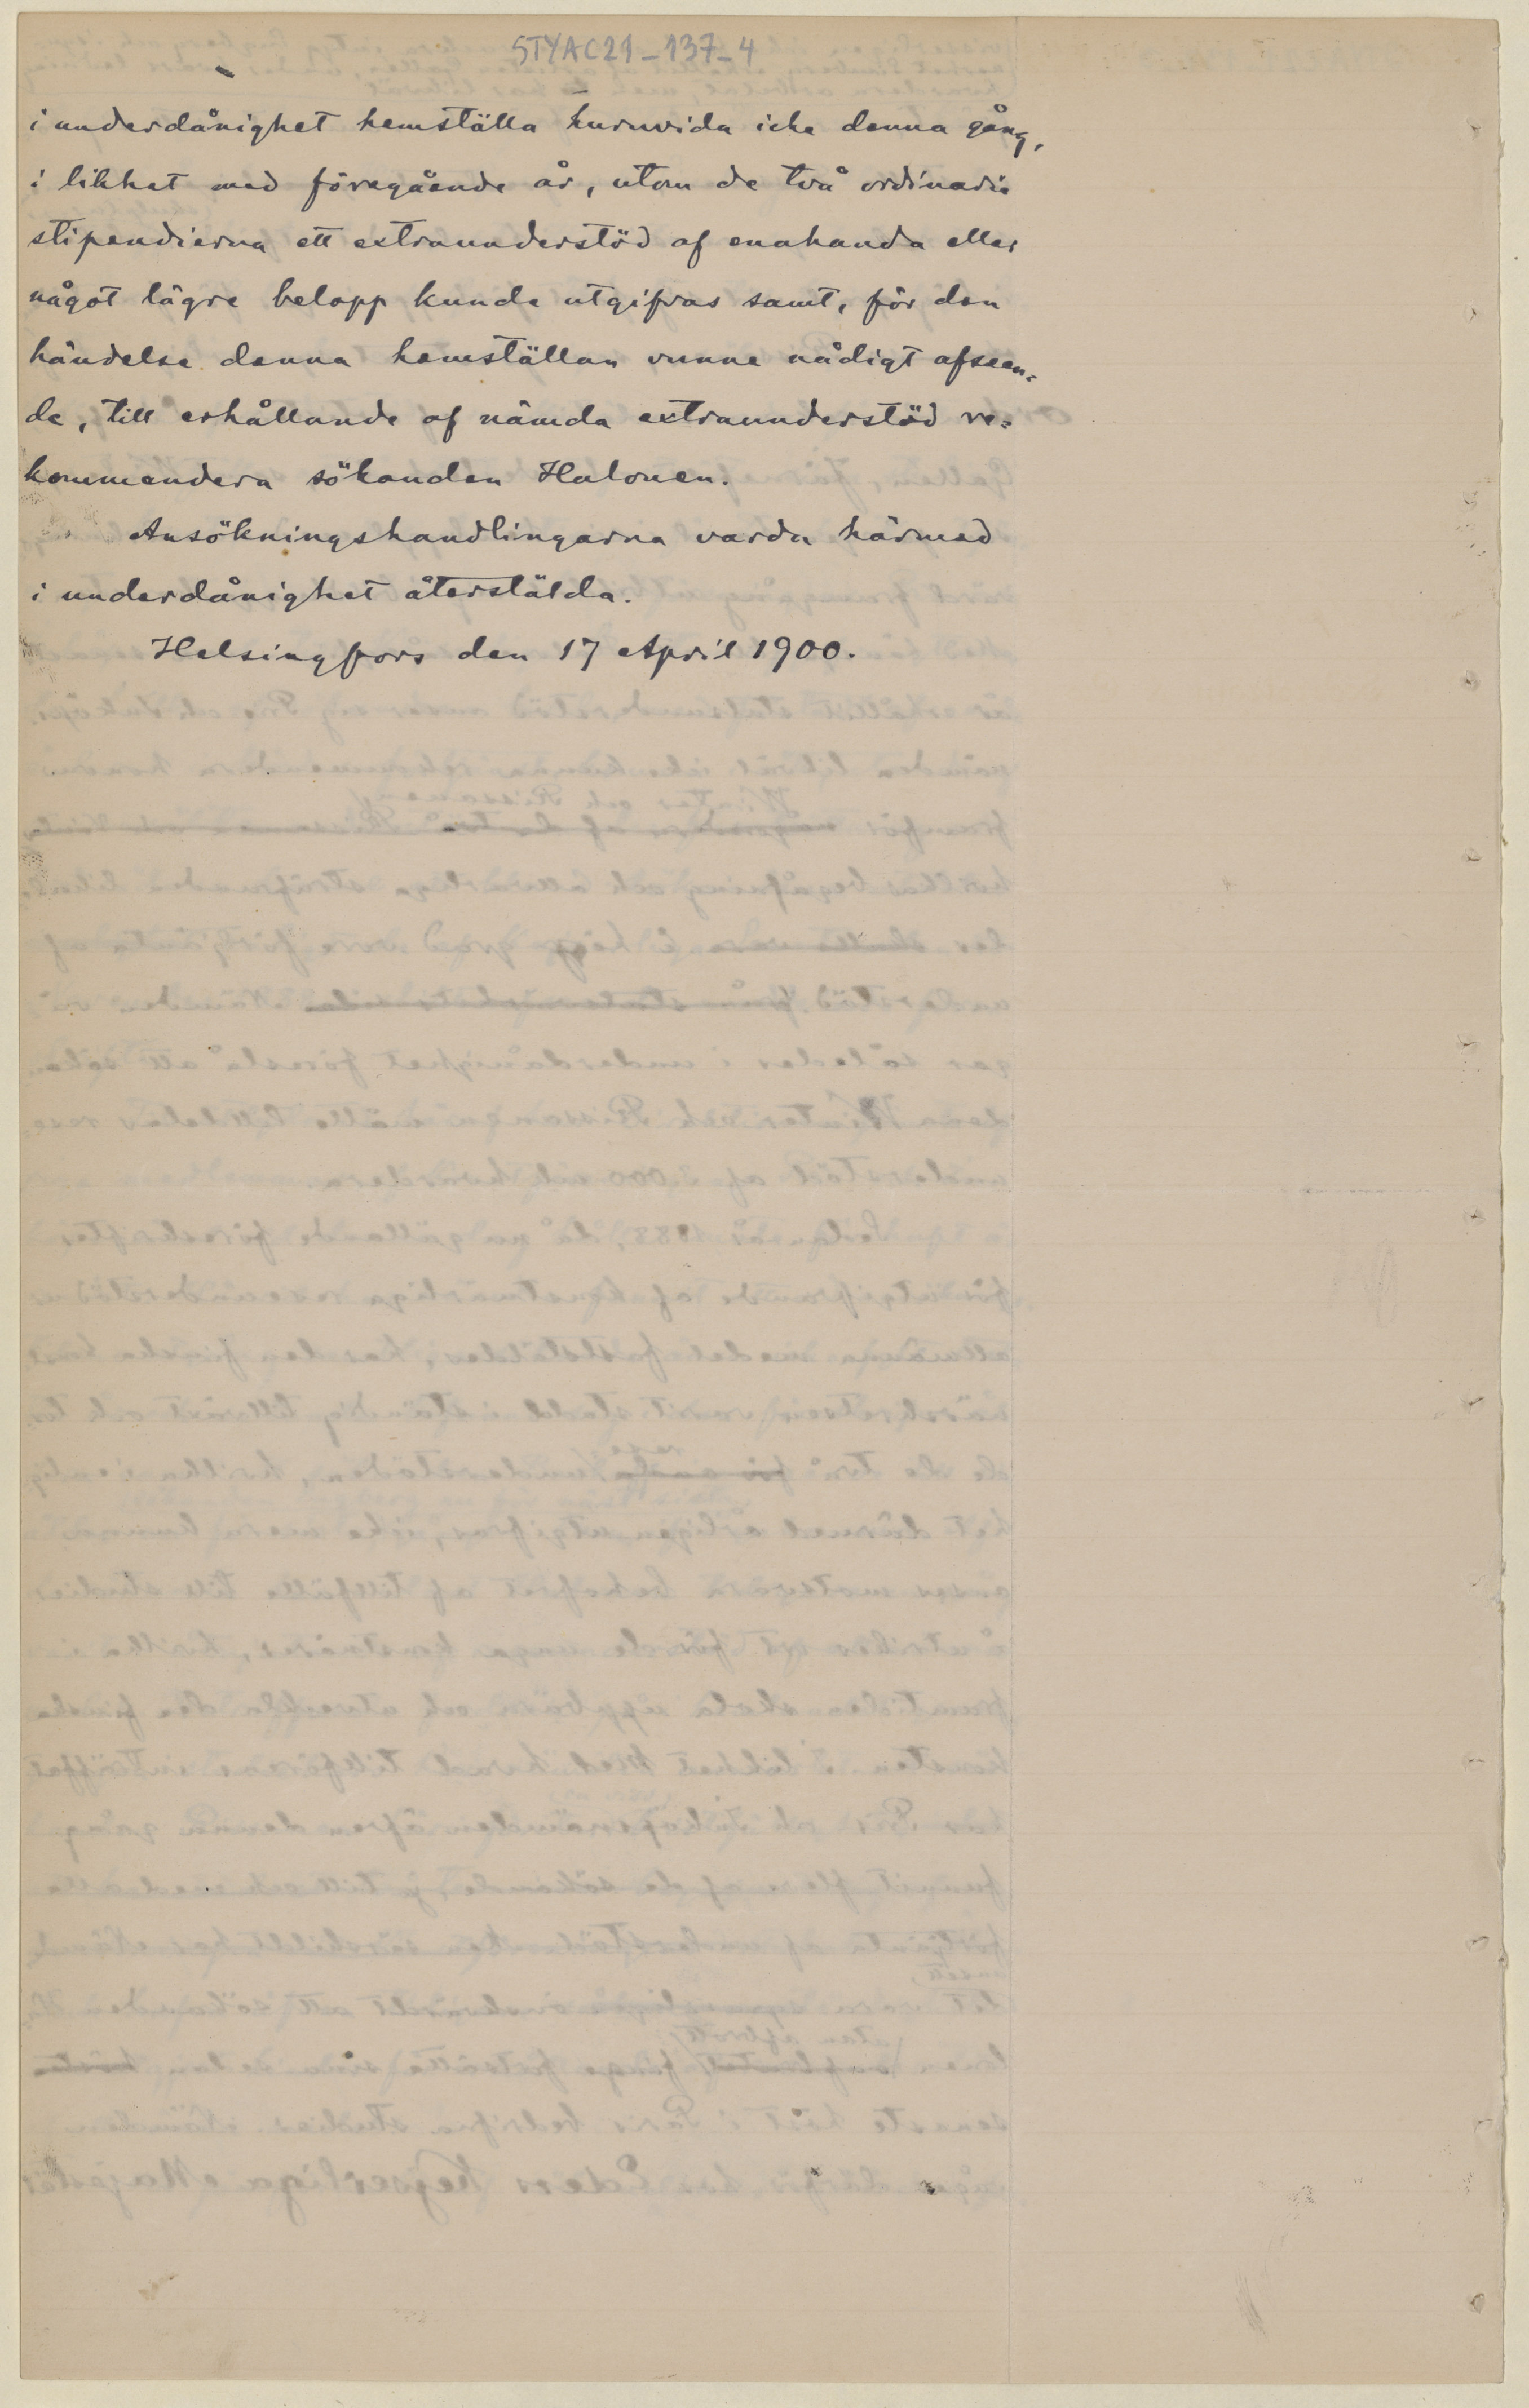 STYAC21_137_4
i underdånighet hemställa huruvida icke denna gång,
i likhet med föregående år, utom de två ordinarie
stipendierna ett extraunderstöd af enahanda eller
något lägre belopp kunde utgifvas samt, för den
händelse denna hemställan vunne nådigt afseen=
de, till erhållande af nämda extraunderstöd re=
kommendera sökanden Halonen.
Ansökningshandlingarna varda härmed
i underdånighet återstälda.
Helsingfors den 17 April 1900.